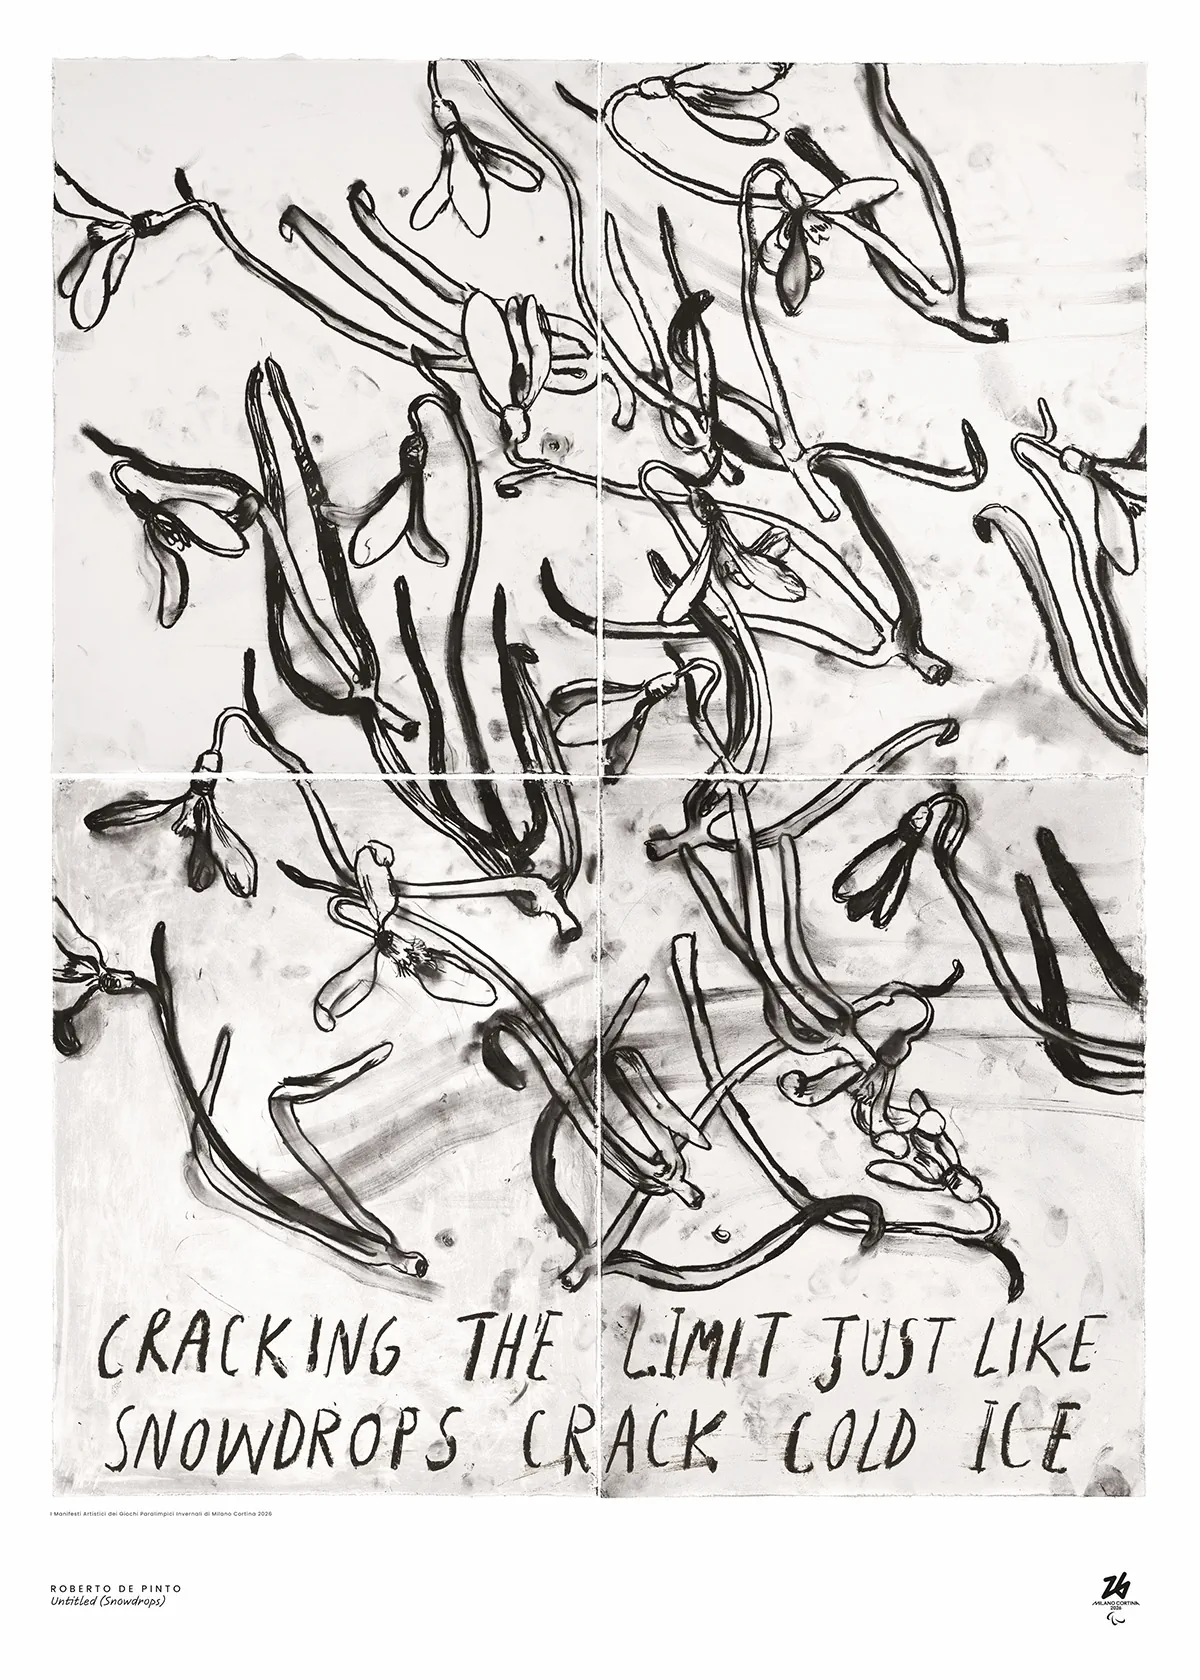 CRACKING THE LIMIT JUST LIKE
SNOWDROPS CRACK COLD ICE
I Manifesti Artistici dei Giochi Paralimpici Invernali di Milano Cortina 2026
ROBERTO DE PINTO
Untitled (Snowdrops)
26
MILANO CORTINA
2026